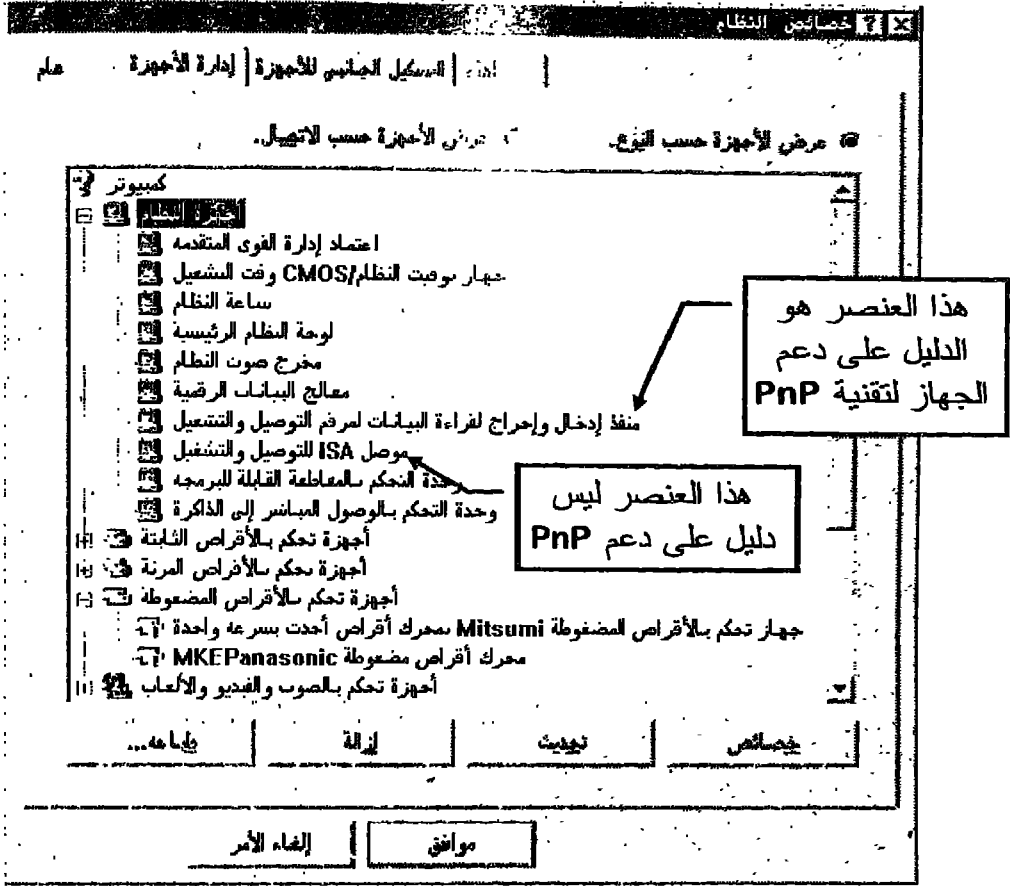 خصائص النظام
عام
إدارة الأجهزة
التشكيل الجانبي للأجهزة
عرض الأجهزة حسب النوع.
عرض الأجهزة حسب الاتصال.
كمبيوتر
أجهزة النظام
اعتماد إدارة القوى المتقدمه
جهاز توقيت النظام/CMOS وقت التشغيل
ساعة النظام
لوحة النظام الرئيسية
مخرج صوت النظام
معالج البيانات الرقمية
منفذ إدخال وإخراج لقراءة البيانات لمرقم التوصيل والتشغيل
موصل ISA للتوصيل والتشغيل
وحدة التحكم بالمقاطعة القابلة للبرمجه
وحدة التحكم بالوصول المباشر إلى الذاكرة
أجهزة تحكم بالأقراص الثابتة
أجهزة تحكم بالأقراص المرنة
أجهزة تحكم بالأقراص المضغوطة
جهاز تحكم بالأقراص المضغوطة Mitsumi بمحرك أقراص أحدث بسرعه واحدة
محرك أقراص مضغوطة MKEPanasonic
أجهزة تحكم بالصوت والفيديو والألعاب
هذا العنصر هو
الدليل على دعم
الجهاز لتقنية PnP
هذا العنصر ليس
دليل على دعم PnP
خصائص
تحديث
إزالة
طباعه...
موافق
إلغاء الأمر